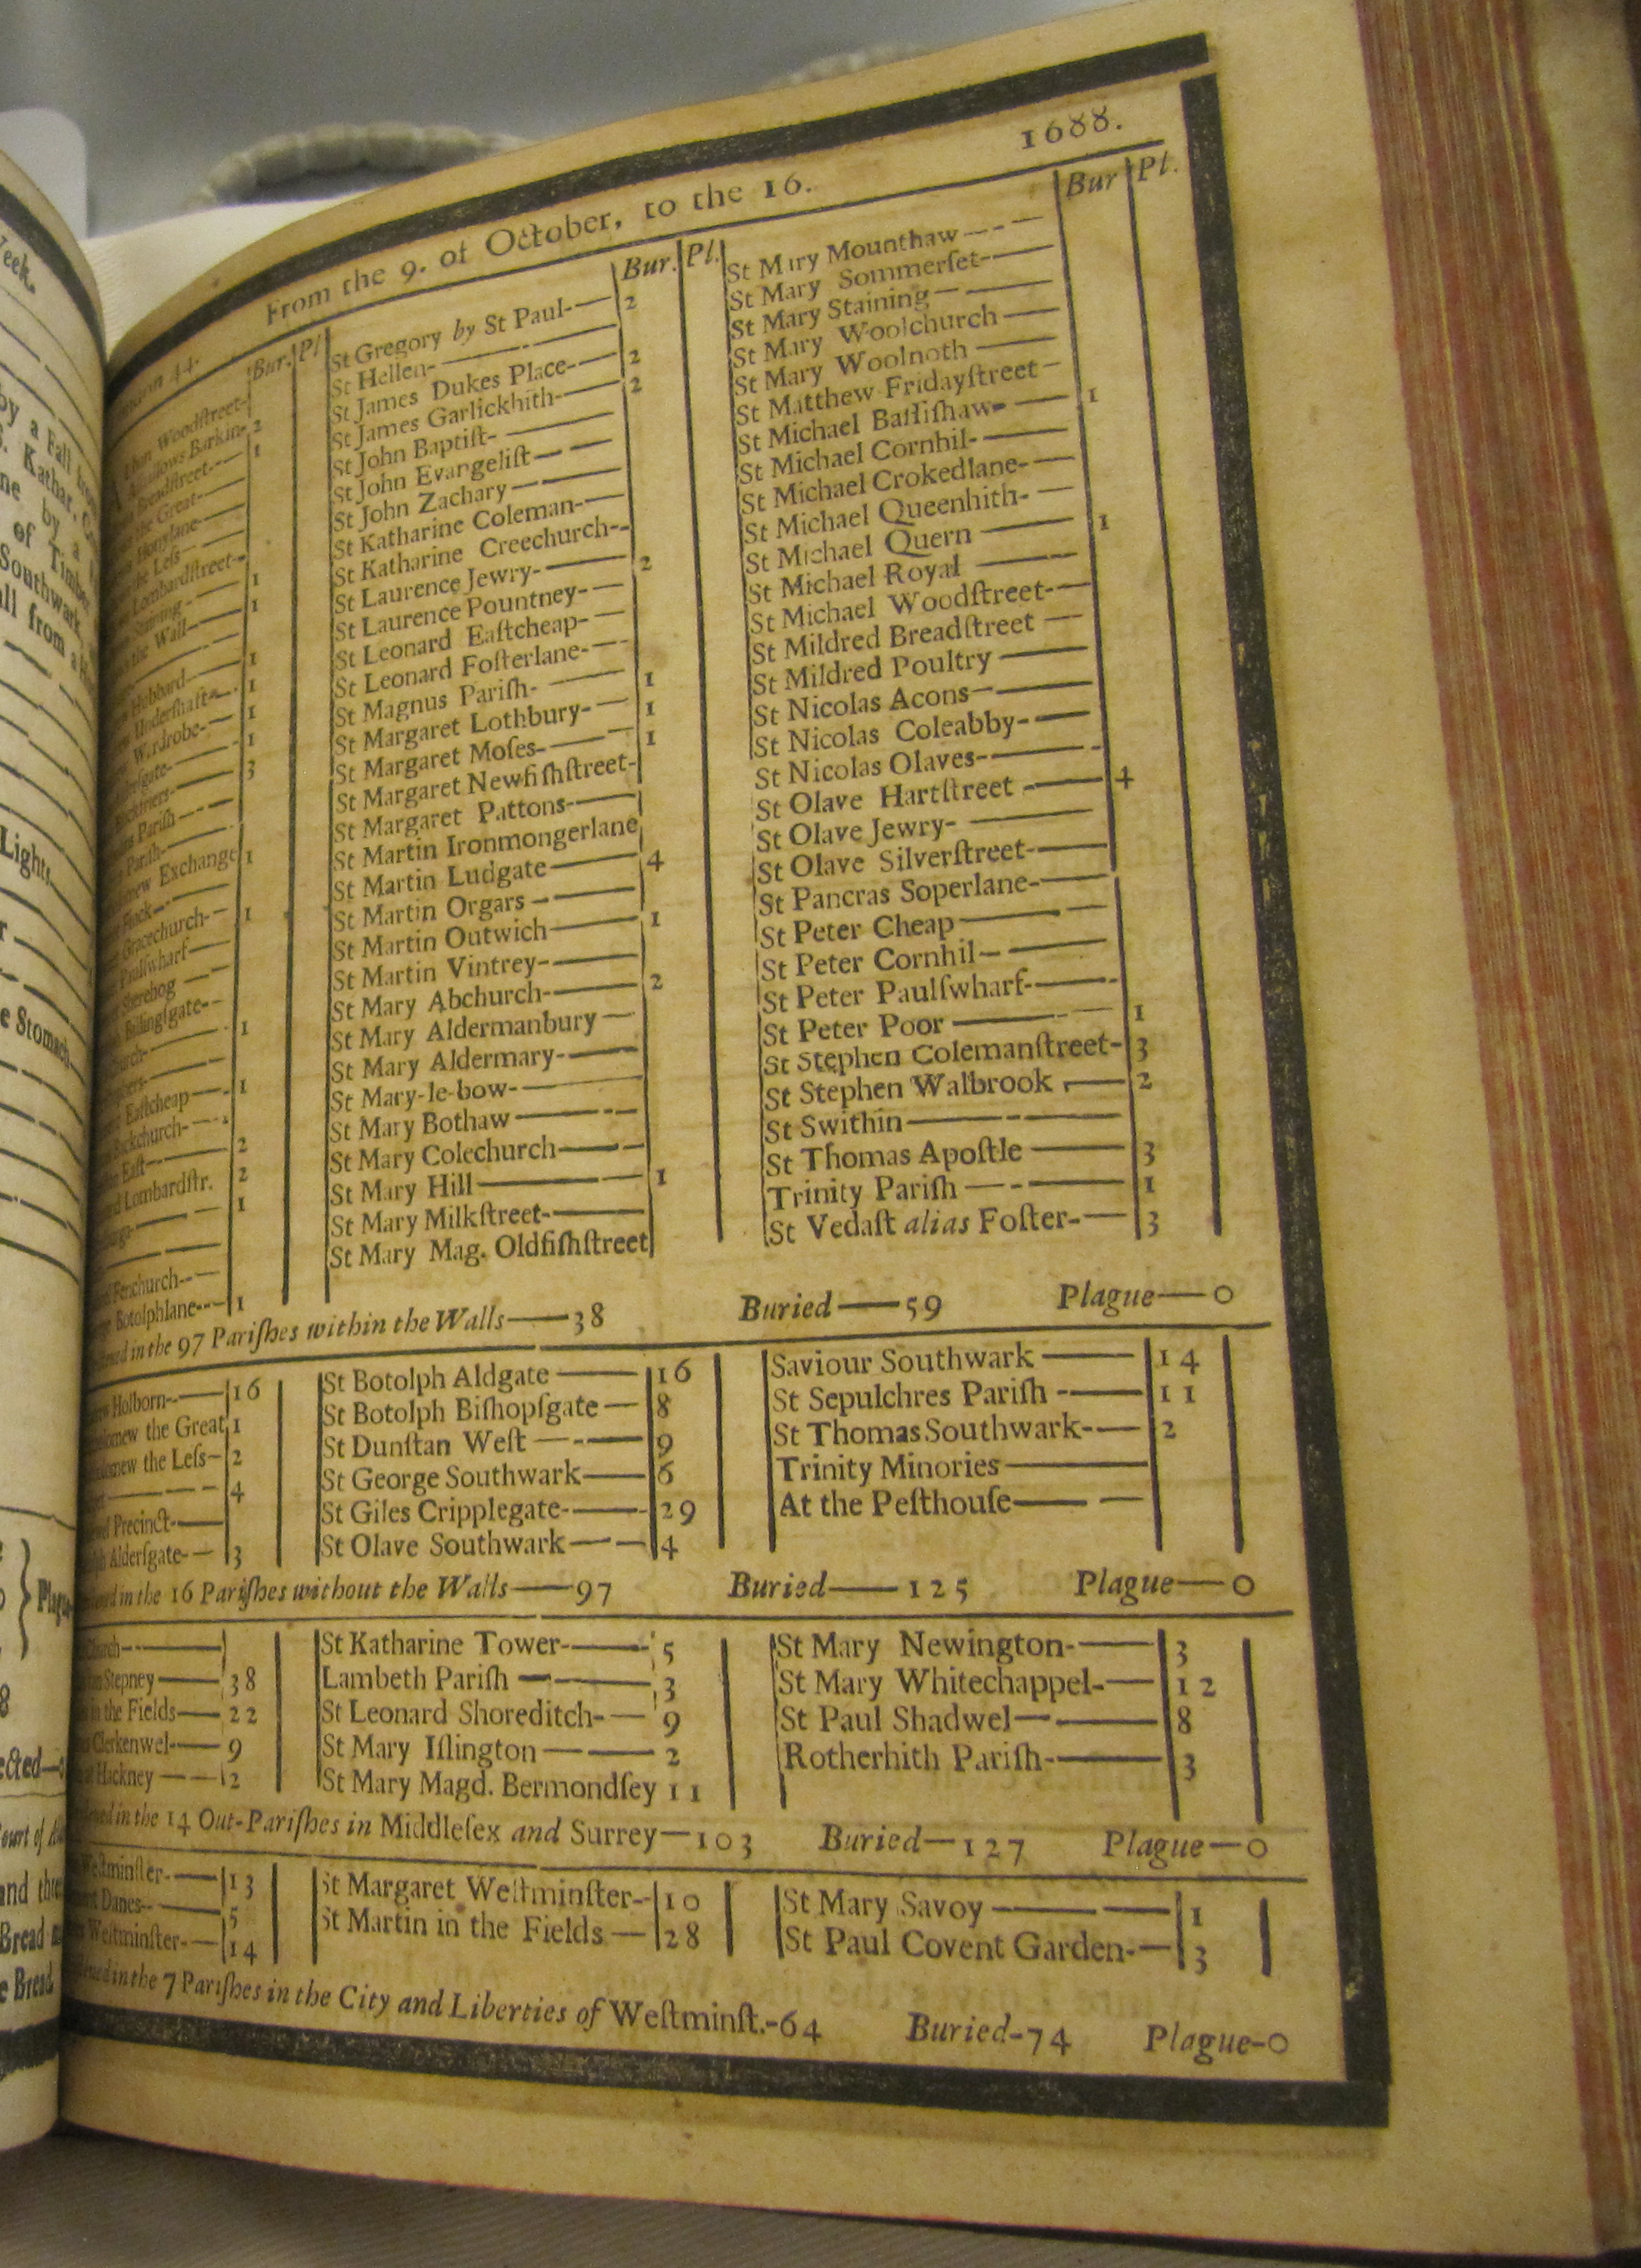 From the 9. of October, to the 16. 1688.
Bur. Pl.
Woodſtreet-
Barkin- 2
Breadſtreet- 1
the Great-
Honylane-
the Leſs
Lombardſtreet-
Staining - 1
the Wall- 1
Hubbard- 1
Underſhaft- 1
Wardrobe- 1
1
3
Pariſh
Pariſh-
Exchange 1
Gracechurch- 1
Paulſwharf
Sherehog
Billingſgate-
1
Eaſtcheap- 1
Backchurch-
Eaſt- 2
Lombardſtr. 2
1
Fenchurch-
Botolphlane- 1
Bur. Pl.
St Gregory by St Paul- 2
St Hellen-
St James Dukes Place- 2
St James Garlickhith- 2
St John Baptiſt-
St John Evangeliſt-
St John Zachary-
St Katharine Coleman-
St Katharine Creechurch-
St Laurence Jewry- 2
St Laurence Pountney-
St Leonard Eaſtcheap-
St Leonard Foſterlane-
St Magnus Pariſh- 1
St Margaret Lothbury- 1
St Margaret Moſes- 1
St Margaret Newfiſhſtreet-
St Margaret Pattons-
St Martin Ironmongerlane
St Martin Ludgate 4
St Martin Orgars
St Martin Outwich 1
St Martin Vintrey-
St Mary Abchurch- 2
St Mary Aldermanbury
St Mary Aldermary-
St Mary-le-bow-
St Mary Bothaw
St Mary Colechurch
St Mary Hill 1
St Mary Milkſtreet-
St Mary Mag. Oldfiſhſtreet
Bur Pl.
St Mary Mounthaw
St Mary Sommerſet-
St Mary Staining
St Mary Woolchurch
St Mary Woolnoth
St Matthew Fridayſtreet
St Michael Baſſiſhaw- 1
St Michael Cornhil-
St Michael Crokedlane-
St Michael Queenhith-
St Michael Quern 1
St Michael Royal
St Michael Woodſtreet-
St Mildred Breadſtreet
St Mildred Poultry
St Nicolas Acons
St Nicolas Coleabby-
St Nicolas Olaves-
St Olave Hartſtreet 4
St Olave Jewry-
St Olave Silverſtreet-
St Pancras Soperlane-
St Peter Cheap
St Peter Cornhil
St Peter Paulſwharf-
St Peter Poor 1
St Stephen Colemanſtreet- 3
St Stephen Walbrook 2
St Swithin
St Thomas Apoſtle 3
Trinity Pariſh 1
St Vedaſt alias Foſter- 3
in the 97 Pariſhes within the Walls—38 Buried—59 Plague—0
Holborn- 16
the Great 1
the Leſs- 2
4
Precinct-
Alderſgate- 3
St Botolph Aldgate 16
St Botolph Biſhopſgate 8
St Dunſtan Weſt 9
St George Southwark 6
St Giles Cripplegate- 29
St Olave Southwark 4
Saviour Southwark 14
St Sepulchres Pariſh 11
St Thomas Southwark- 2
Trinity Minories
At the Peſthouſe
in the 16 Pariſhes without the Walls—97 Buried—125 Plague—0
Stepney 38
in the Fields 22
Clerkenwel 9
Hackney 2
St Katharine Tower- 5
Lambeth Pariſh 3
St Leonard Shoreditch- 9
St Mary Iſlington 2
St Mary Magd. Bermondſey 11
St Mary Newington- 3
St Mary Whitechappel- 12
St Paul Shadwel 8
Rotherhith Pariſh- 3
in the 14 Out-Pariſhes in Middleſex and Surrey—103 Buried—127 Plague—0
Weſtminſter- 13
Danes- 5
Weſtminſter- 14
St Margaret Weſtminſter- 10
St Martin in the Fields 28
St Mary Savoy 1
St Paul Covent Garden- 3
in the 7 Pariſhes in the City and Liberties of Weſtminſt.-64 Buried-74 Plague-0